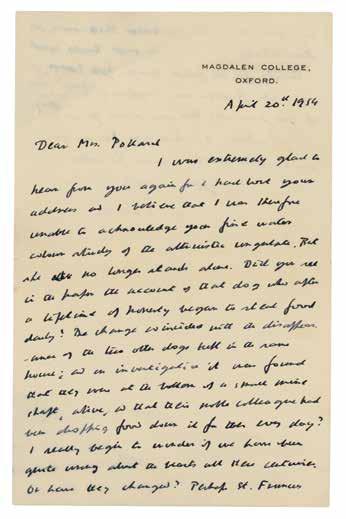 MAGDALEN COLLEGE,
OXFORD.
April 20th 1954
Dear Mrs. Pollard
I was extremely glad to
hear from you again for I had lost your
address and I believe that I was therefore
unable to acknowledge your fine water
colour study of the altruistic ungulate. But
she no longer stands alone. Did you see
in the paper the account of that dog who after
a lifetime of honesty began to steal food
daily? The change coincided with the disappear-
-ance of the two other dogs kept in the same
house; and on investigation it was found
that they were at the bottom of a small mine
shaft, alive, and that their noble colleague had
been dropping food down it for them every day?
I really begin to wonder if we have been
quite wrong about the beasts all these centuries.
Or have they changed? Perhaps St. Francis